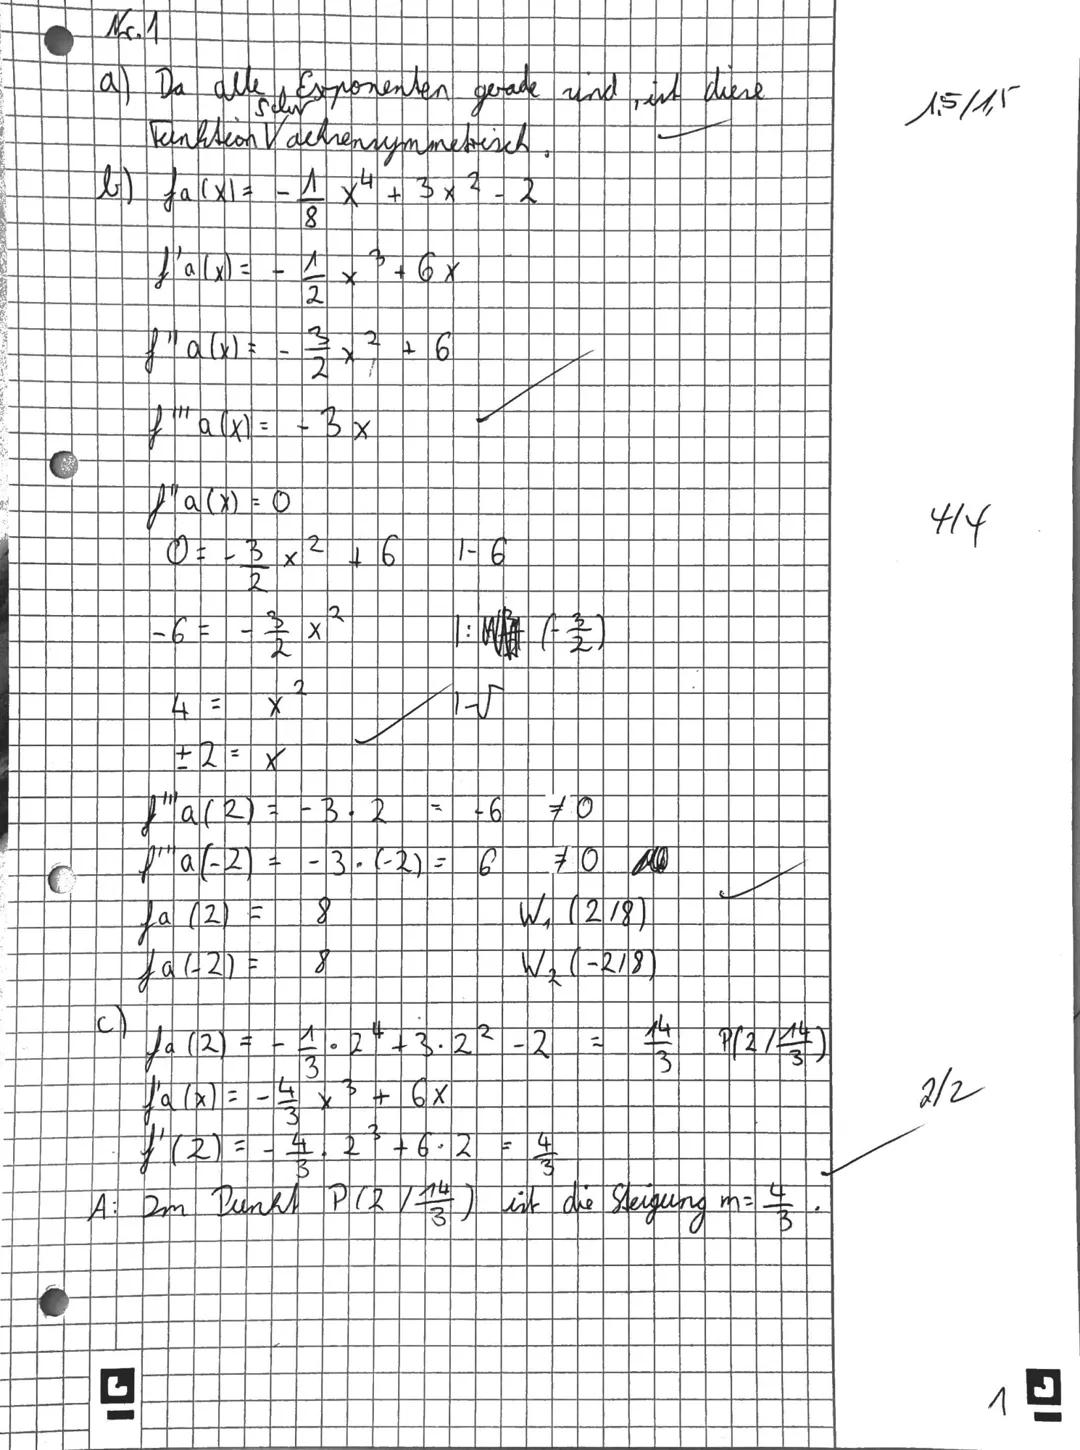 Nr. 1
a) Da alle Exponenten gerade sind, ist diese
Funktion Schar achsensymmetrisch.
1,5/1,5
b) fa(x) = - 1/8 x^4 + 3x^2 - 2
f'a(x) = - 1/2 x^3 + 6x
f''a(x) = - 3/2 x^2 + 6
f'''a(x) = - 3x
f''a(x) = 0
4/4
0 = - 3/2 x^2 + 6 |- 6
-6 = - 3/2 x^2 |: (- 3/2)
4 = x^2 |√
±2 = x
f'''a(2) = -3 · 2 = -6 ≠ 0
f'''a(-2) = -3 · (-2) = 6 ≠ 0
fa(2) = 8 W₁ (2/8)
fa(-2) = 8 W₂ (-2/8)
c) fa(2) = - 1/3 · 2^4 + 3 · 2^2 - 2 = 14/3 P(2 / 14/3)
f'a(x) = - 4/3 x^3 + 6x
2/2
f'(2) = - 4/3 · 2^3 + 6 · 2 = 4/3
A: Im Punkt P(2 / 14/3) ist die Steigung m = 4/3.
1